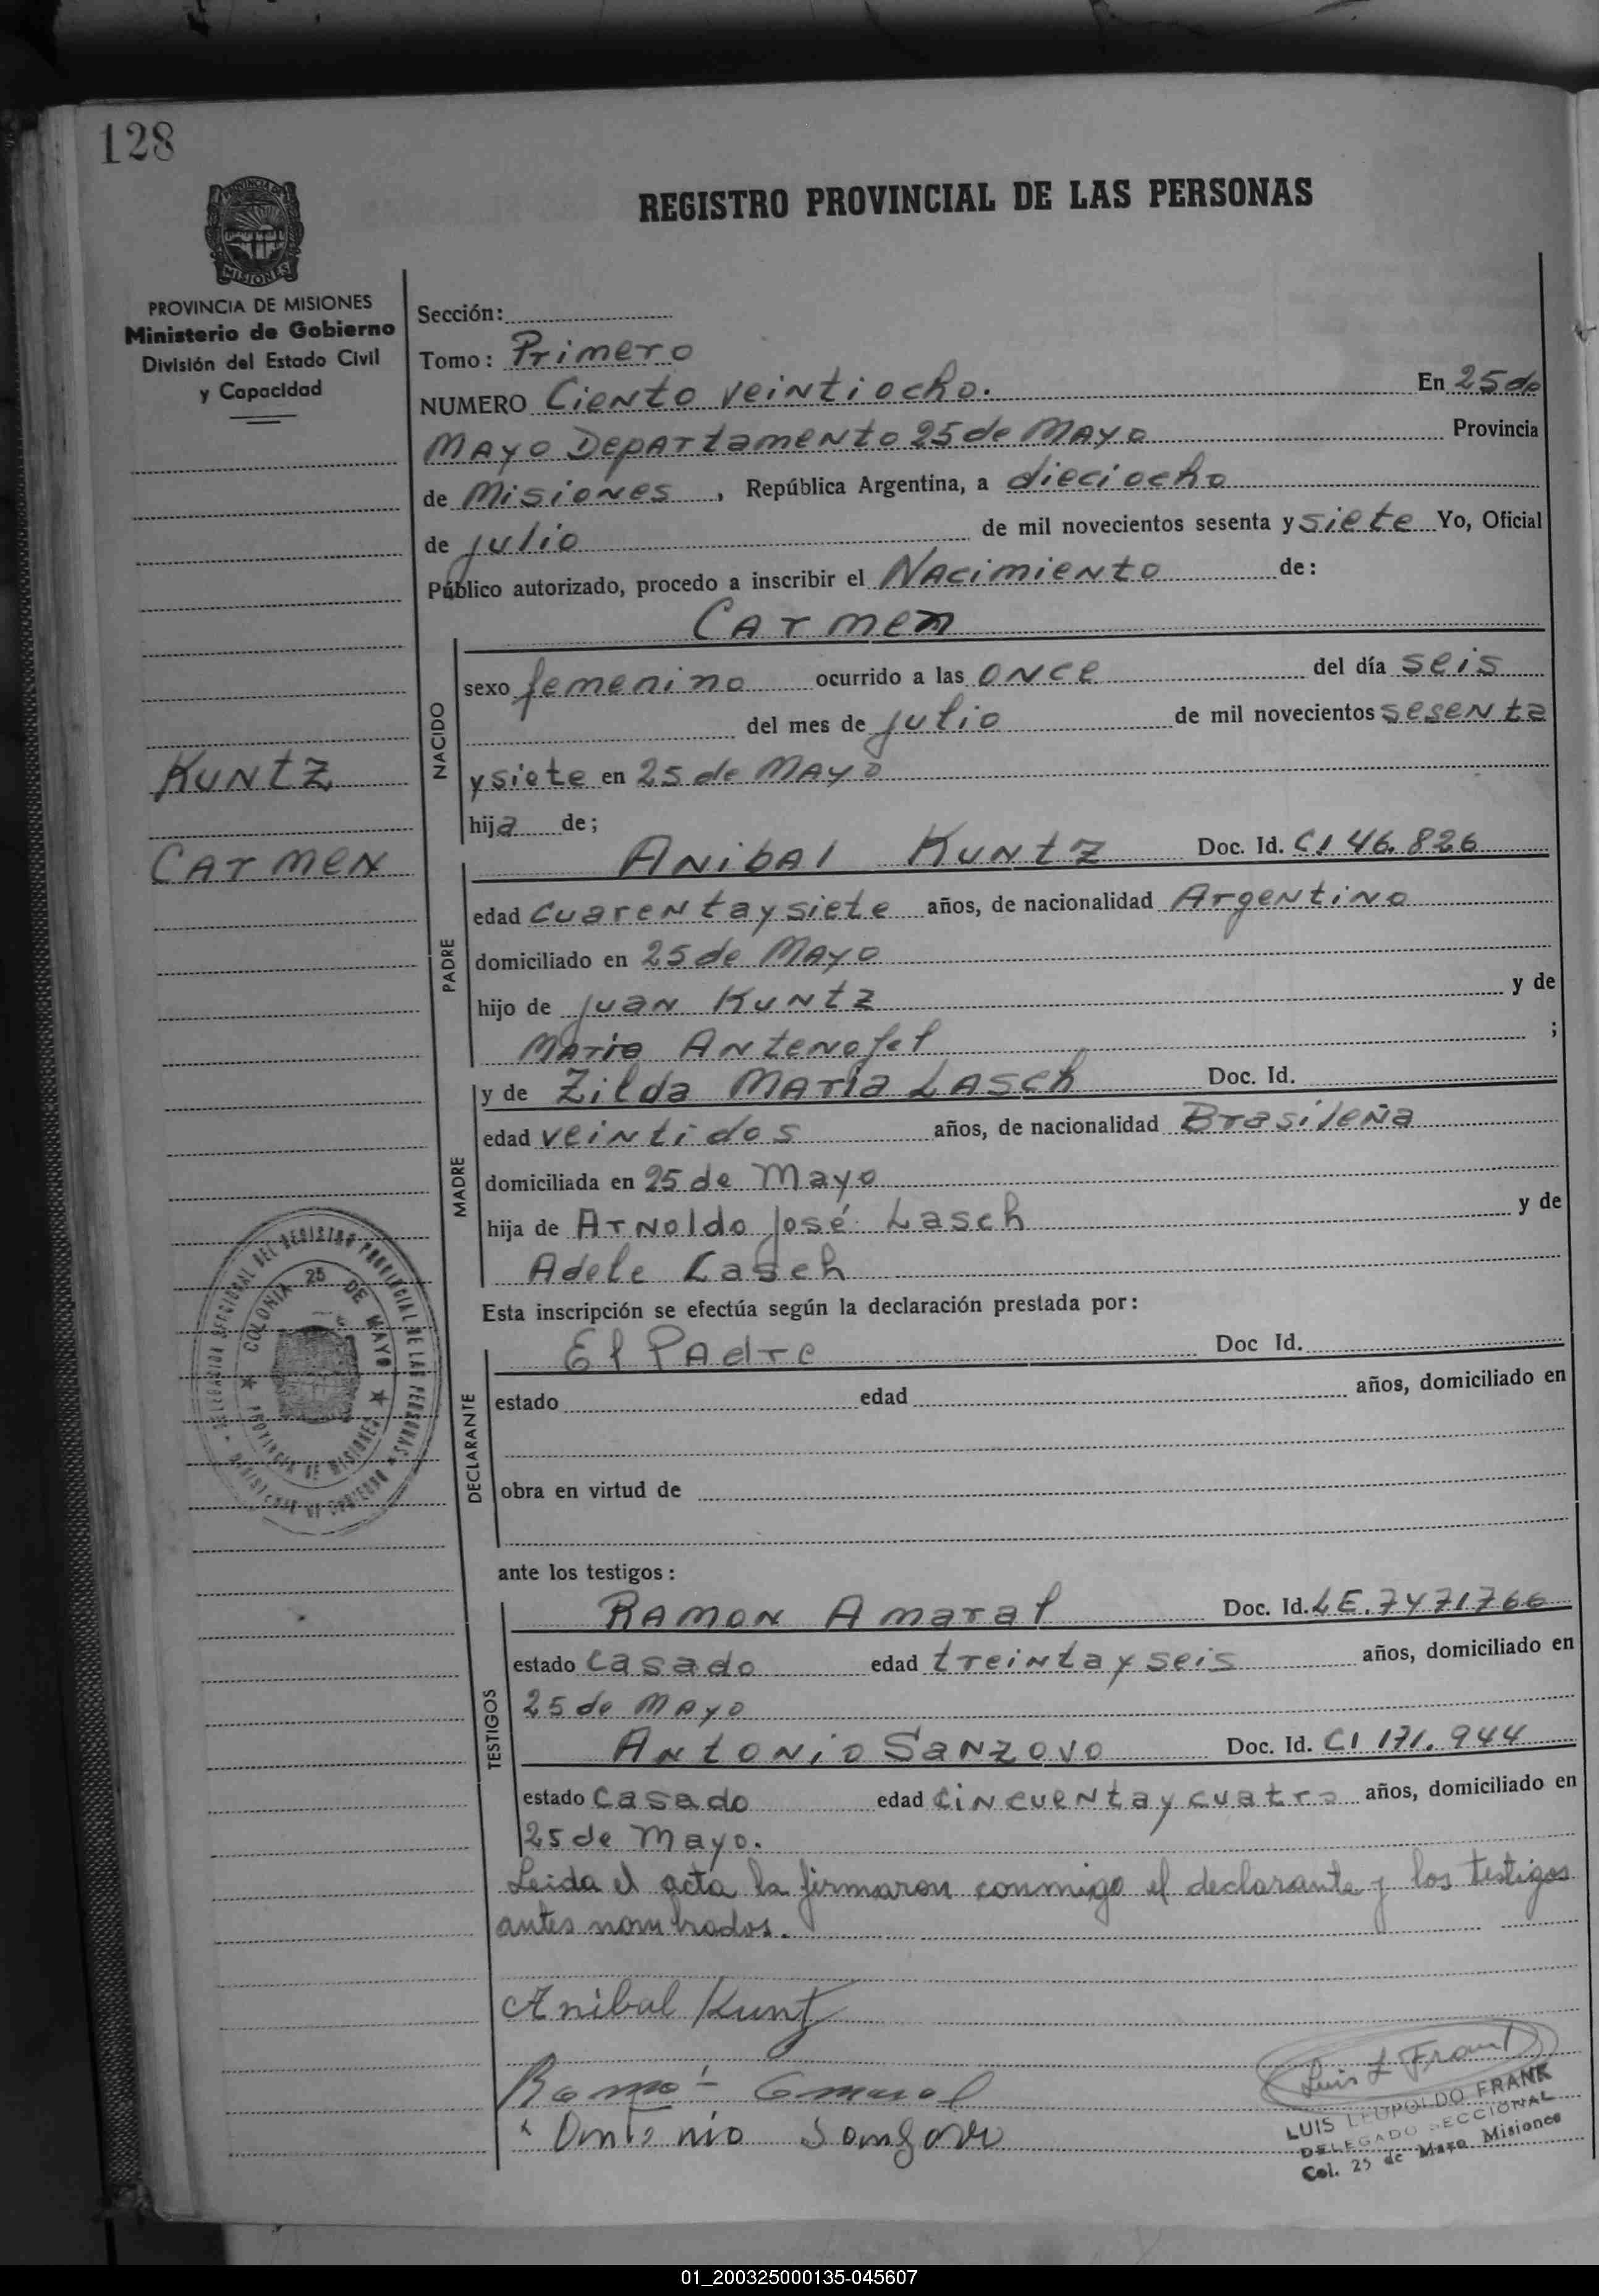 128
REGISTRO PROVINCIAL DE LAS PERSONAS
PROVINCIA DE MISIONES
Ministerio de Gobierno
División del Estado Civil
y Capacidad
KUNTZ
CARMEN
Sección:
Tomo: Primero
NUMERO Ciento veintiocho. En 25 de
Mayo Departamento 25 de Mayo Provincia
de Misiones, República Argentina, a dieciocho
de julio de mil novecientos sesenta y siete Yo, Oficial
Público autorizado, procedo a inscribir el Nacimiento de:
Carmen
NACIDO
sexo femenino ocurrido a las once del día seis
del mes de julio de mil novecientos sesenta
y siete en 25 de Mayo
hija de;
PADRE
Anibal Kuntz Doc. Id. CI 46.826
edad cuarenta y siete años, de nacionalidad Argentino
domiciliado en 25 de Mayo
hijo de Juan Kuntz y de
Maria Antenofel ;
MADRE
y de Zilda Maria Lasch Doc. Id.
edad veintidos años, de nacionalidad Brasileña
domiciliada en 25 de Mayo
hija de Arnoldo José Lasch y de
Adele Lasch
Esta inscripción se efectúa según la declaración prestada por:
DECLARANTE
El Padre Doc Id.
estado edad años, domiciliado en
obra en virtud de
ante los testigos:
TESTIGOS
Ramon Amaral Doc. Id. LE. 7471766
estado casado edad treinta y seis años, domiciliado en
25 de Mayo
Antonio Sanzovo Doc. Id. CI 171.944
estado casado edad cincuenta y cuatro años, domiciliado en
25 de Mayo.
Leida el acta la firmaron conmigo el declarante y los testigos
antes nombrados.
Anibal Kuntz
Luis L Frank
LUIS LEOPOLDO FRANK
DELEGADO SECCIONAL
Col. 25 de Mayo Misiones
DELEGACION SECCIONAL DEL REGISTRO PROVINCIAL DE LAS PERSONAS
MINISTERIO DE GOBIERNO
COLONIA 25 DE MAYO
PROVINCIA DE MISIONES
PROVINCIA DE
MISIONES
01_200325000135-045607